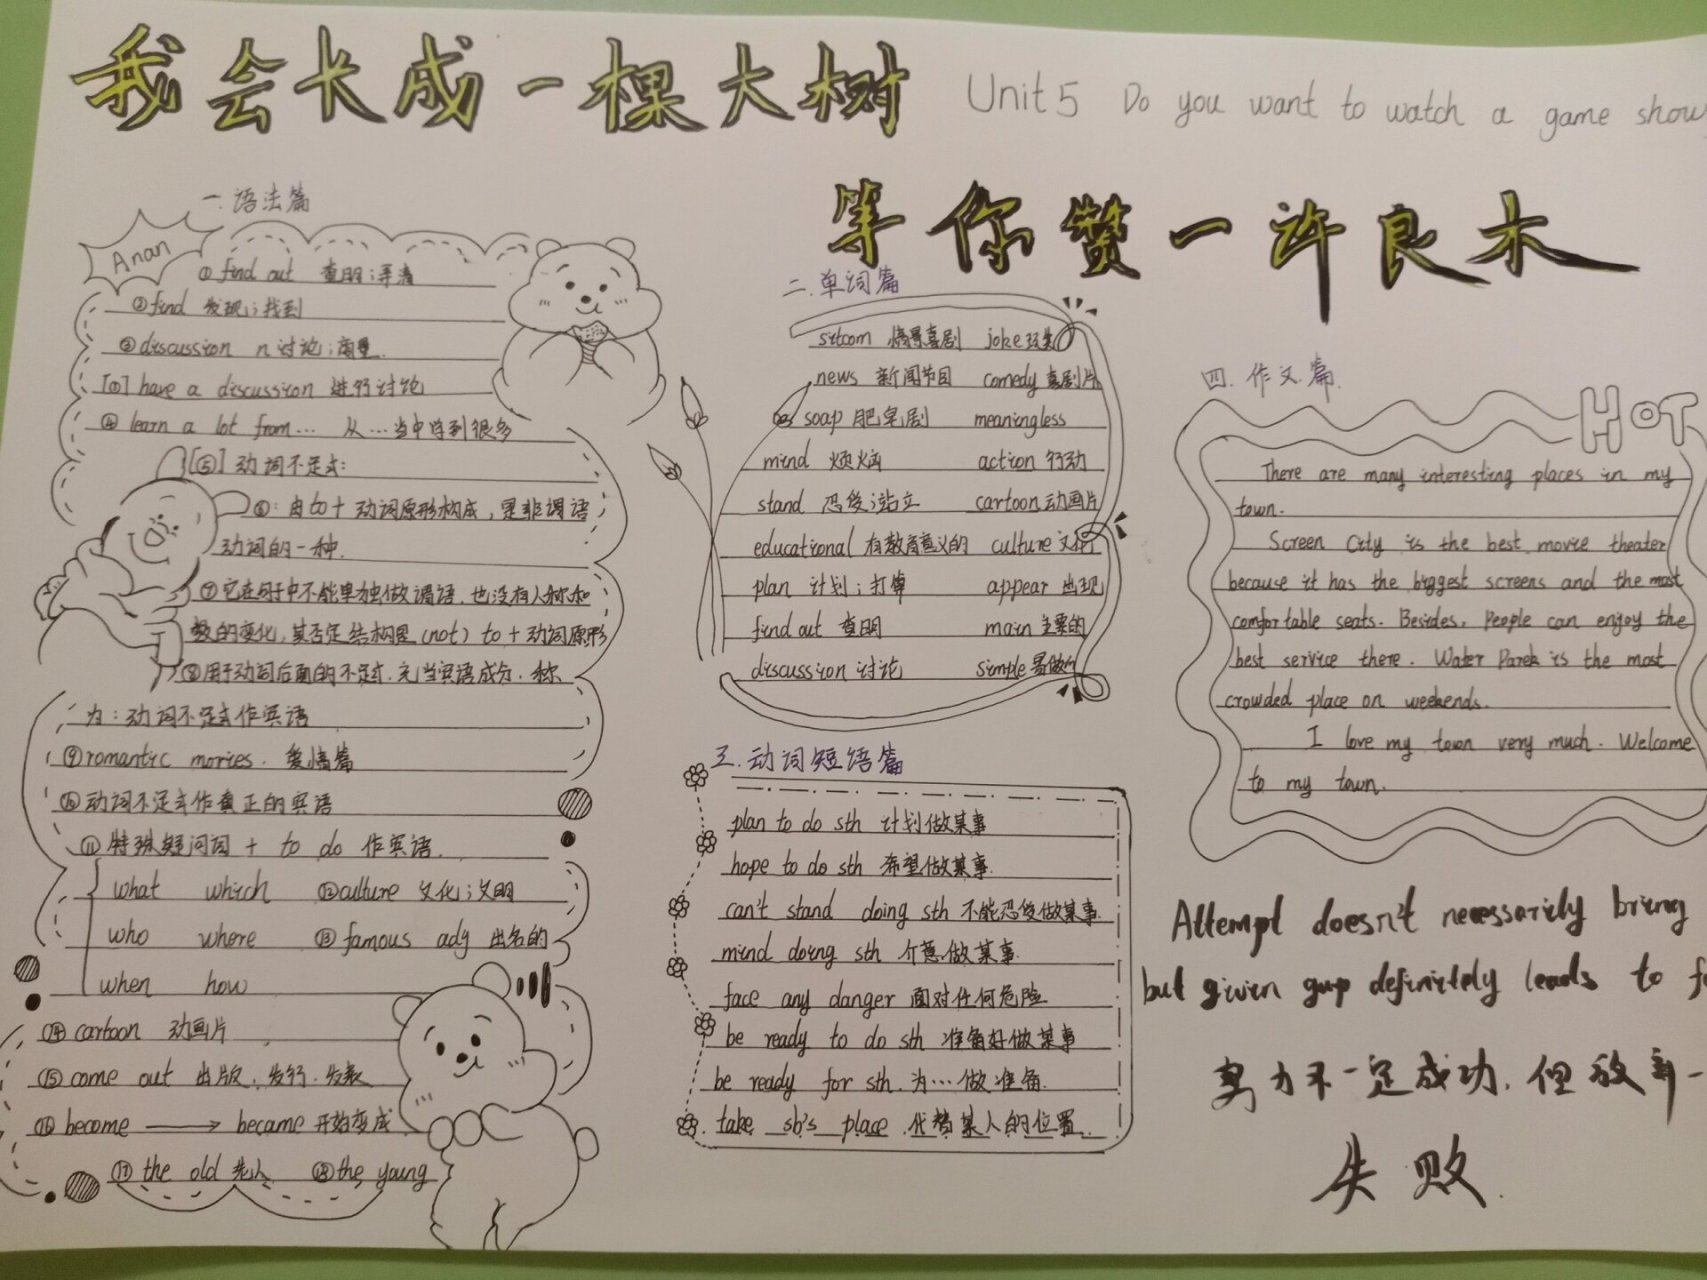 我会长成一棵大树
Unit 5 Do you want to watch a game show
等你赞一许良木
一.语法篇
Anan
① find out 查明;弄清
② find 发现;找到
③ discussion n 讨论;商量
[0] have a discussion 进行讨论
④ learn a lot from… 从…当中学到很多
[⑤] 动词不定式:
⑥: 由to + 动词原形构成,是非谓语
动词的一种.
⑦它在句子中不能单独做谓语.也没有人称和
数的变化,其否定结构是(not) to + 动词原形
⑧用于动词后面的不定式.充当宾语成分.称
为:动词不定式作宾语
⑨romantic movies. 爱情篇
⑩动词不定式作真正的宾语
⑪ 特殊疑问词 + to do 作宾语.
what which ⑫culture 文化;文明
who where ⑬ famous adj 出名的
when how
⑭ cartoon 动画片
⑮ come out 出版.发行.发表
⑯ become → became 开始变成
⑰ the old 老人 ⑱the young
二.单词篇
sitcom 情景喜剧 joke 玩笑
news 新闻节目 comedy 喜剧片
soap 肥皂剧 meaningless
mind 烦恼 action 行动
stand 忍受;站立 cartoon 动画片
educational 有教育意义的 culture 文化
plan 计划;打算 appear 出现
find out 查明 main 主要的
discussion 讨论 simple 易做的
三.动词短语篇
plan to do sth 计划做某事
hope to do sth 希望做某事.
can't stand doing sth 不能忍受做某事.
mind doing sth 介意做某事.
face any danger 面对任何危险
be ready to do sth 准备好做某事
be ready for sth.为…做准备.
take sb's place 代替某人的位置.
四.作文篇.
HOT
There are many interesting places in my
town.
Screen City is the best movie theater
because it has the biggest screens and the most
comfortable seats. Besides, People can enjoy the
best service there. Water Parek is the most
crowded place on weekends.
I love my town very much. Welcome
to my town.
Attempt doesn't necessarily bring
but givien gup definitely leads to
努力不一定成功.但放弃一
失败.